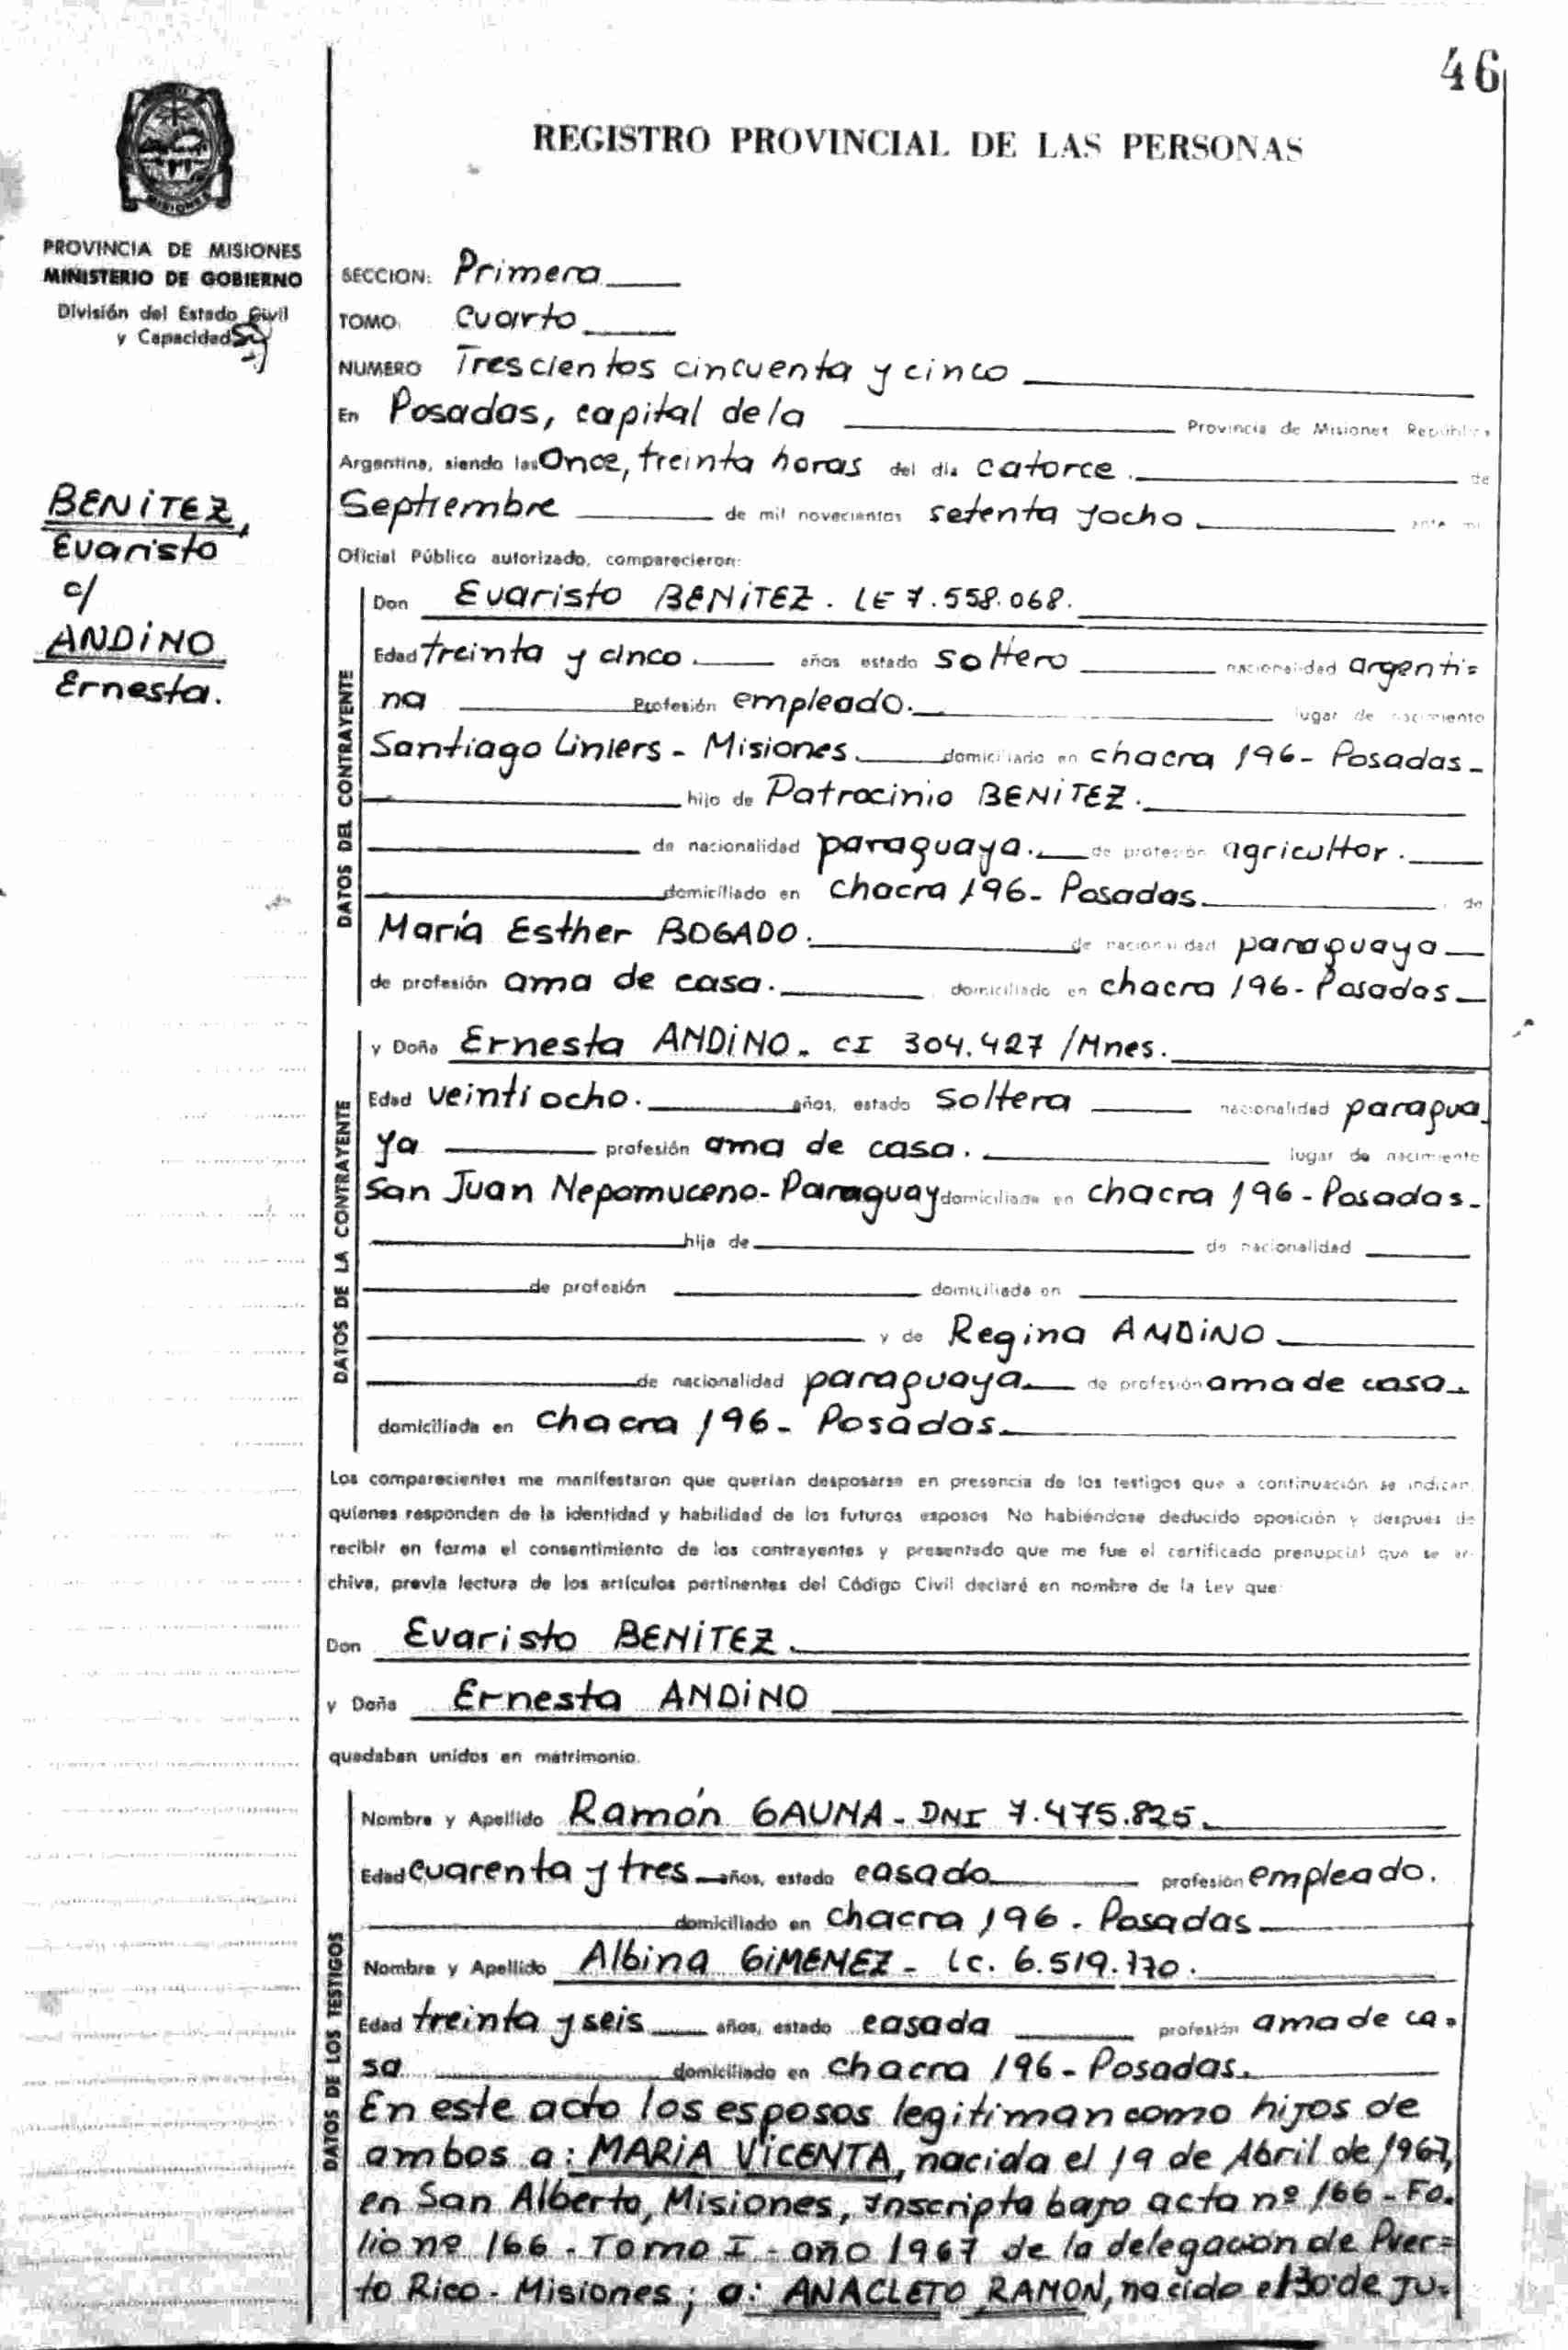 46
REGISTRO PROVINCIAL DE LAS PERSONAS
MISIONES
PROVINCIA DE MISIONES
MINISTERIO DE GOBIERNO
División del Estado Civil
y Capacidad
BENiTEZ,
Evaristo
c/
ANDiNO
Ernesta.
SECCION: Primera
TOMO: Cuarto
NUMERO Trescientos cincuenta y cinco
En Posadas, capital de la Provincia de Misiones República
Argentina, siendo las Once, treinta horas del día catorce. de
Septiembre de mil novecientos setenta y ocho ante mi
Oficial Público autorizado, comparecieron:
DATOS DEL CONTRAYENTE
Don Evaristo BENiTEZ. LE 7.558.068.
Edad treinta y cinco. años estado soltero nacionalidad argenti=
na Profesión empleado. lugar de nacimiento
Santiago Liniers - Misiones. domiciliado en chacra 196- Posadas-
hijo de Patrocinio BENiTEZ.
de nacionalidad paraguaya. de profesión agricultor.
domiciliado en chacra 196- Posadas. de
María Esther BOGADO. de nacionalidad paraguaya
de profesión ama de casa. domiciliado en chacra 196- Posadas
DATOS DE LA CONTRAYENTE
y Doña Ernesta ANDiNO. CI 304.427 /Mnes.
Edad veintiocho. años, estado soltera nacionalidad paragua
ya profesión ama de casa. lugar de nacimiento
San Juan Nepomuceno- Paraguay domiciliada en chacra 196 - Posadas-
hija de de nacionalidad
de profesión domiciliado en
y de Regina ANDiNO
de nacionalidad paraguaya. de profesión ama de casa.
domiciliada en chacra 196- Posadas.
Los comparecientes me manifestaron que querían desposarse en presencia de los testigos que a continuación se indican,
quienes responden de la identidad y habilidad de los futuros esposos No habiéndose deducido oposición y después de
recibir en forma el consentimiento de los contrayentes y presentado que me fue el certificado prenupcial que se ar-
chiva, previa lectura de los artículos pertinentes del Código Civil declaré en nombre de la Ley que:
Don Evaristo BENiTEZ.
y Doña Ernesta ANDiNO
quedaban unidos en matrimonio.
DATOS DE LOS TESTIGOS
Nombre y Apellido Ramón GAUNA- DNI 7.475.825.
Edad cuarenta y tres años, estado casado profesión empleado.
domiciliado en chacra 196. Posadas
Nombre y Apellido Albina GiMENEZ- Lc. 6.519.770.
Edad treinta y seis años, estado casada profesión ama de ca.
sa domiciliado en chacra 196- Posadas.
En este acto los esposos legitiman como hijos de
ambos a: MARiA ViCENTA, nacida el 19 de Abril de 1967,
en San Alberto, Misiones, inscripta bajo acta nº 166- Fo.
lio nº 166 - Tomo I - año 1967 de la delegación de Puer=
to Rico - Misiones; a: ANACLETO RAMON, nacido el 30 de Ju.